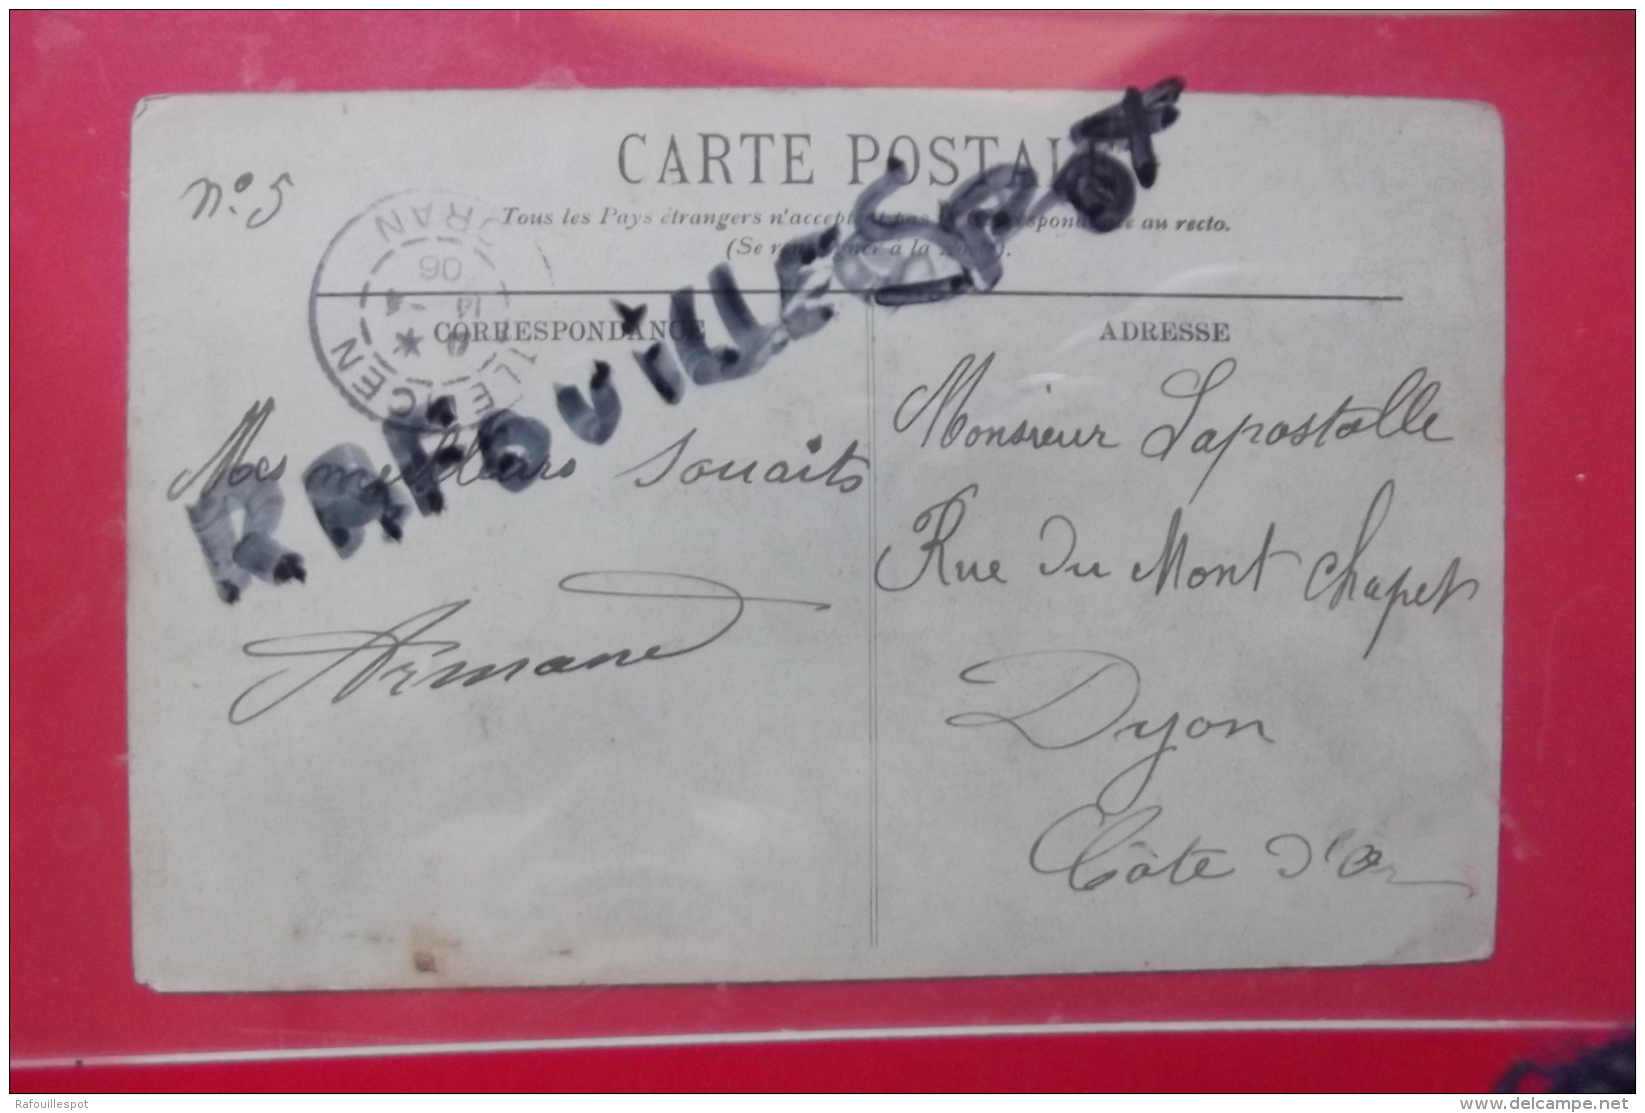 CARTE POSTALE
n° 5
Tous les Pays étrangers n'acceptent pas la correspondance au recto.
(Se à la
TLEMCEN
ORAN
14 -4
06
CORRESPONDANCE
ADRESSE
RAFOUILLESPOT
Mes meilleurs souaits
Armand
Monsieur Lapostolle
Rue du Mont Chapet
Dyon
Côte d'Or
Rafouillespot
www.delcampe.net